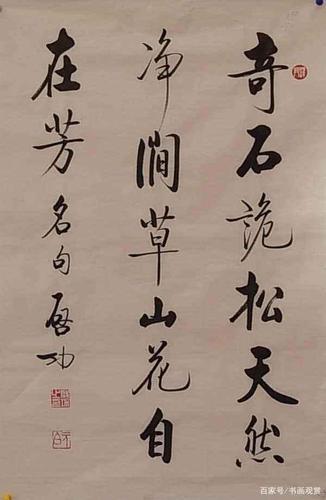 奇石詭松天然
净澗草山花自
在芳 名句 啓功
百家号/书画观赏